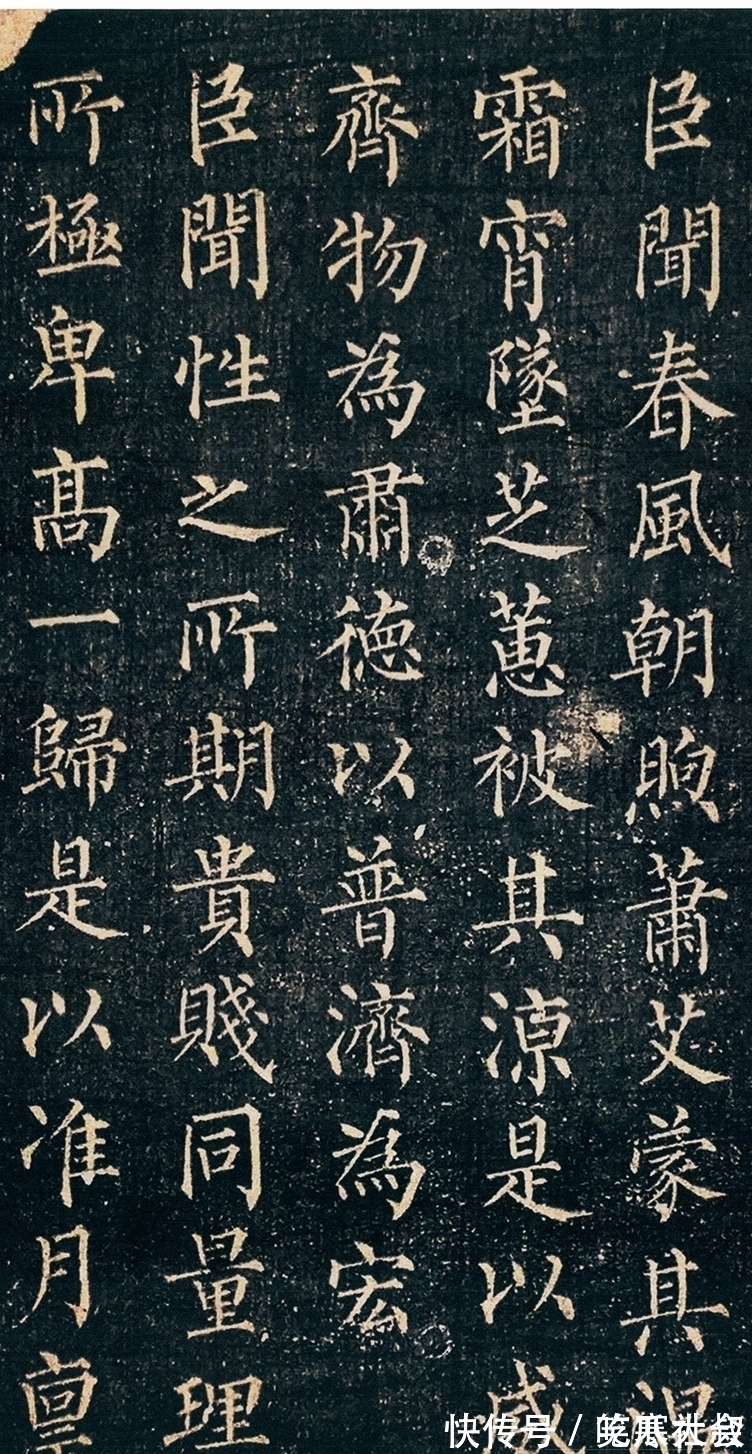 臣聞春風朝煦蕭艾蒙其温
霜宵墜芝蕙被其涼是以威
齊物為肅德以普濟為宏
臣聞性之所期貴賤同量理
所極卑高一歸是以准月稟
快传号 / 皖寒社叔